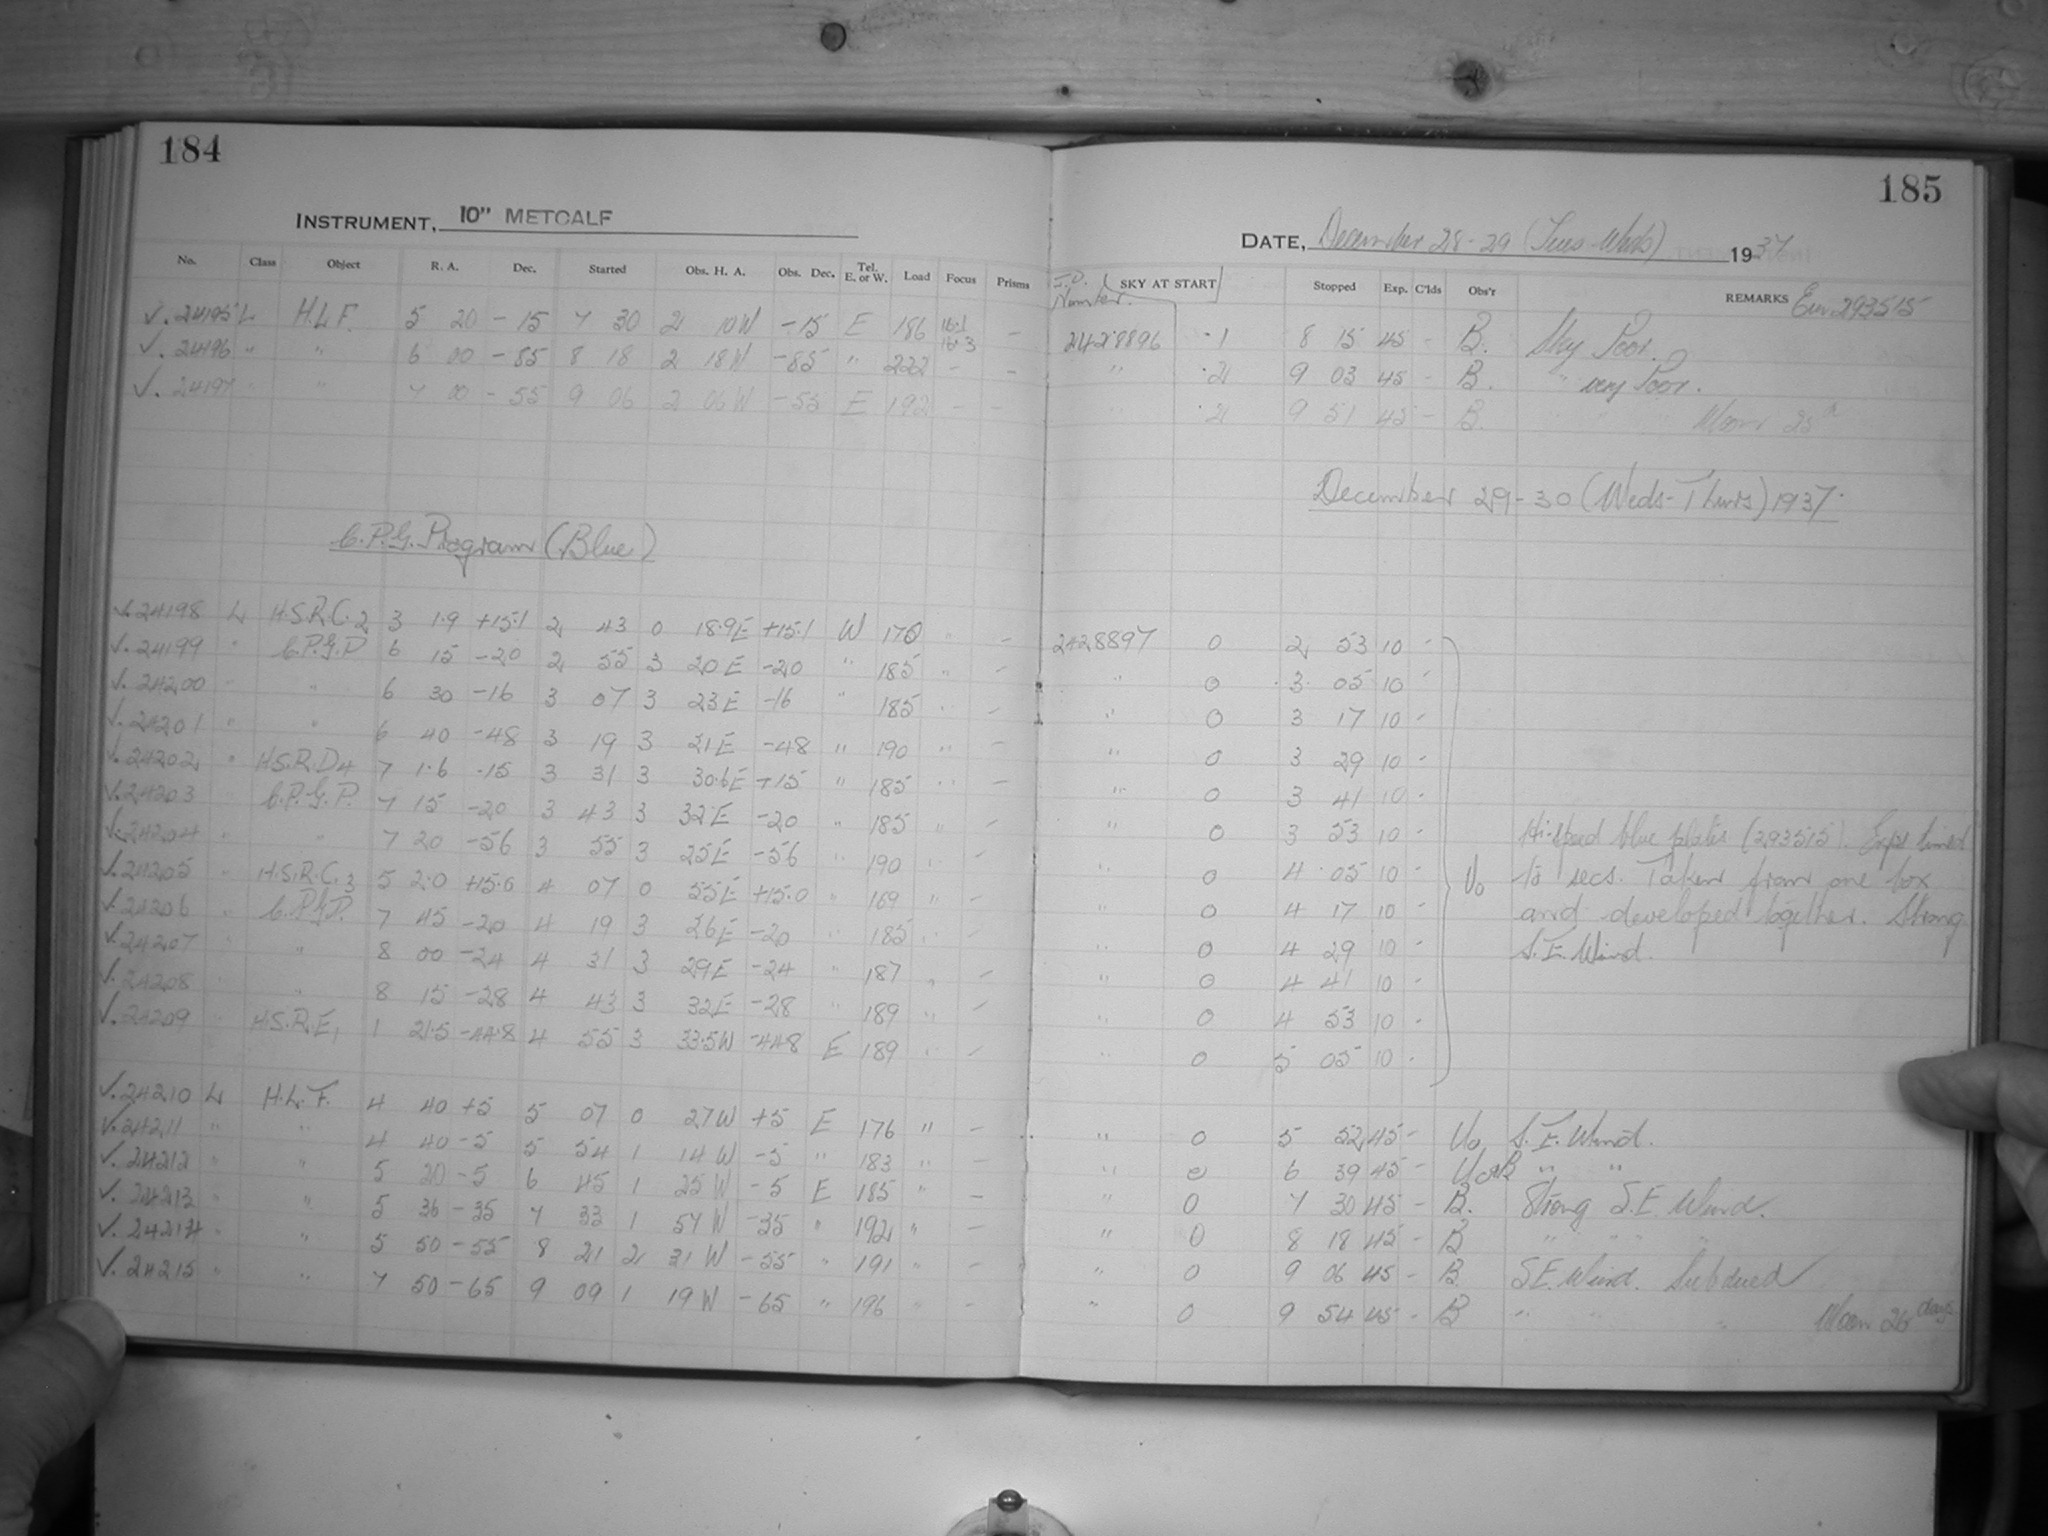 184
INSTRUMENT, 10" METCALF
No. Class Object R. A. Dec. Started Obs. H. A. Obs. Dec. Tel. E. or W. Load Focus Prisms
√. 24195 L H.L.F. 5 20 - 15 7 30 2 10W -15 E 186 16.1 16.3 -
√. 24196 " " 6 00 - 85 8 18 2 18W -85 " 222 - -
√. 24197 " " 7 00 - 55 9 06 2 06W -55 E 192 - -
C.P.G. Program (Blue)
√. 24198 L H.S.R.C.2 3 1.9 +15.1 2 43 0 18.9E +15.1 W 170 " -
√. 24199 " C.P.G.P 6 15 -20 2 55 3 20E -20 " 185 " -
√. 24200 " " 6 30 -16 3 07 3 23E -16 " 185 " -
√. 24201 " " 6 40 -48 3 19 3 21E -48 " 190 " -
√. 24202 " H.S.R.D4 7 1.6 -15 3 31 3 30.6E +15 " 185 " -
√. 24203 " C.P.G.P. 7 15 -20 3 43 3 32E -20 " 185 " -
√. 24204 " " 7 20 -56 3 55 3 25E -56 " 190 " -
√. 24205 " H.S.R.C.3 5 2.0 +15.0 4 07 0 55E +15.0 " 169 " -
√. 24206 " C.P.G.P. 7 45 -20 4 19 3 26E -20 " 185 " -
√. 24207 " " 8 00 -24 4 31 3 29E -24 " 187 " -
√. 24208 " " 8 15 -28 4 43 3 32E -28 " 189 " -
√. 24209 " H.S.R.E1 1 21.5 -44.8 4 55 3 33.5W -44.8 E 189 " -
√. 24210 L H.L.F. 4 40 +5 5 07 0 27W +5 E 176 " -
√. 24211 " " 4 40 -5 5 54 1 14W -5 " 183 " -
√. 24212 " " 5 20 -5 6 45 1 25W -5 E 185 " -
√. 24213 " " 5 36 -35 7 33 1 57W -35 " 192 " -
√. 24214 " " 5 50 -55 8 21 2 31W -55 " 191 " -
√. 24215 " " 7 50 -65 9 09 1 19W -65 " 196 " -
185
DATE, December 28-29 (Tues-Weds) 1937
I.D. Number. SKY AT START Stopped Exp. C'lds Obs'r REMARKS Em 293515
2428896 .1 8 15 45 - B. Sky Poor.
" .2 9 03 45 - B. " very Poor.
" .2 9 51 45 - B. Moon 25
December 29-30 (Weds-Thurs) 1937.
2428897 0 2 53 10 -
" 0 3 05 10 -
" 0 3 17 10 -
" 0 3 29 10 -
" 0 3 41 10 -
" 0 3 53 10 - Hi-speed blue plates (293515). Exps timed
" 0 4 05 10 - Uo to secs. Taken from one box
" 0 4 17 10 - and developed together. Strong
" 0 4 29 10 - S.E. Wind.
" 0 4 41 10 -
" 0 4 53 10 -
" 0 5 05 10 -
" 0 5 52 45 - Uo S.E. Wind.
" 0 6 39 45 - Uo&B " "
" 0 7 30 45 - B. Strong S.E. Wind.
" 0 8 18 45 - B " " " "
" 0 9 06 45 - B. S.E. Wind. Subdued
" 0 9 54 45 - B " " " Moon 26 days